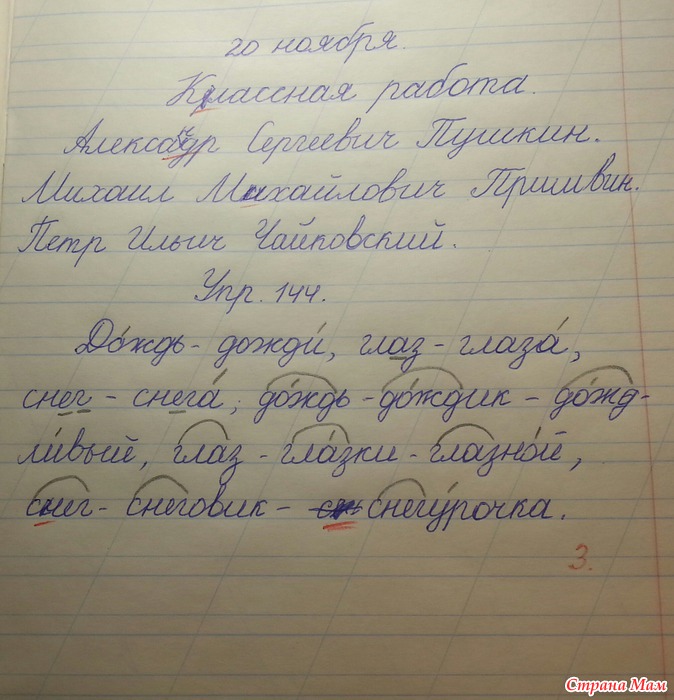 20 ноября.
Классная работа.
Александр Сергеевич Пушкин.
Михаил Михайлович Пришвин.
Петр Ильич Чайковский.
Упр. 144.
До́ждь - дожди́, глаз - глаза́,
снег - снега́; до́ждь - до́ждик - до́жд-
ли́вый, глаз - гла́зки - глазно́й,
снег - снеговик - сн снегу́рочка.
3.
Страна Мам